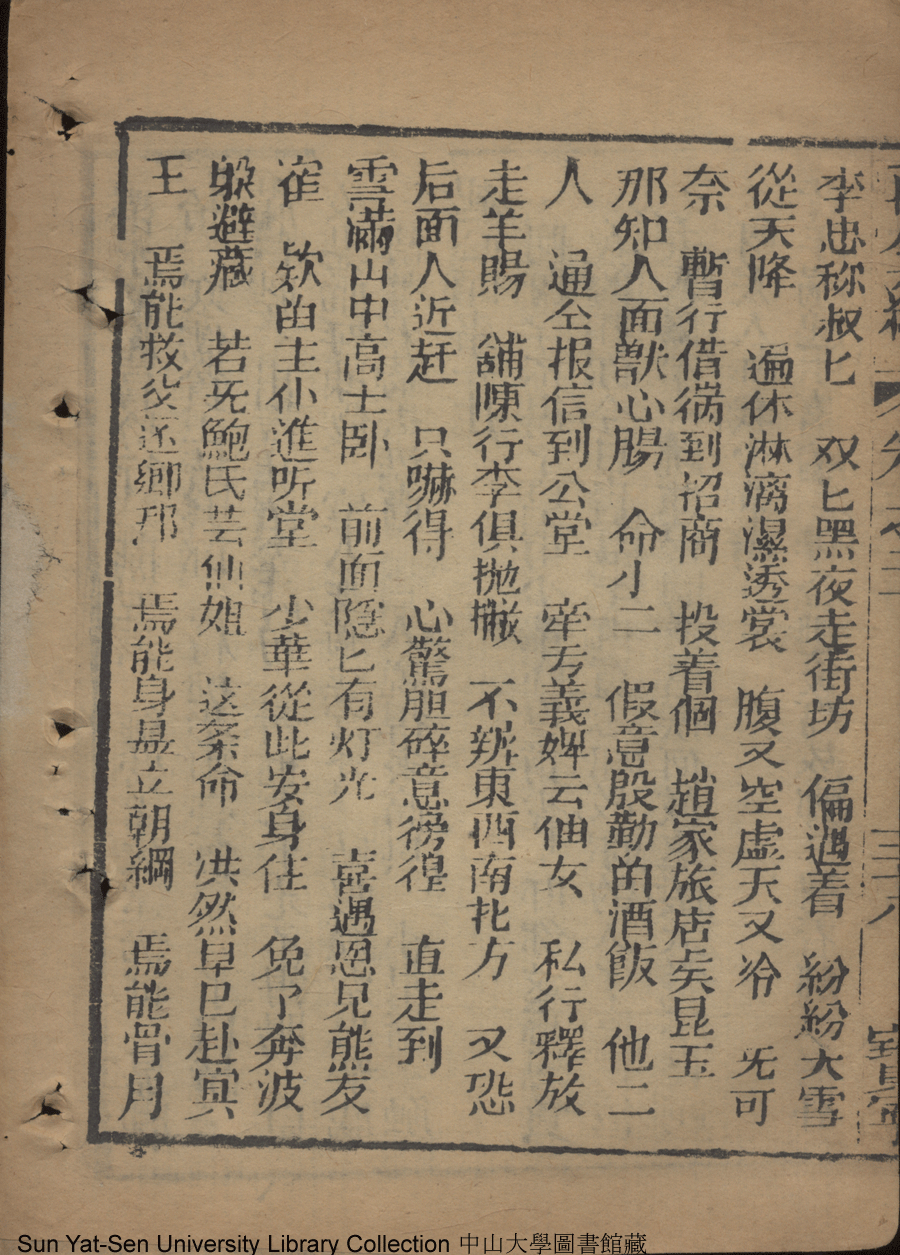 李忠称叔匕　双匕黑夜走街坊　偏遇着　紛紛大雪
從天降　遍休淋漓濕透裳　腹又空虛天又冷　旡可
奈　暫行借徜到招商　投着個　趙家旅店矣昆玉
那知人面獸心腸　命小二　假意殷勤的酒飯　他二
人　通仝报信到公堂　牵亐義婢云仙女　私行釋放
走羊賜　舖陳行李俱抛撇　不辨東西南北方　又恐
后面人近赶　只嚇得　心驚胆碎意徬徨　直走到
雪滿山中高士卧　前面隱匕有灯光　喜遇恩兄熊友
崔　欵的主仆進听堂　少華從此安身住　免了奔波
躲避藏　若旡鮑氏芸仙姐　这条命　洪然早已赴冥
王　焉能救父还鄉邦　焉能身显立朝綱　焉能骨月
卷之三
三十八
Sun Yat-Sen University Library Collection 中山大學圖書館藏